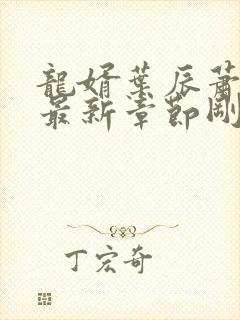 龍婿葉辰蕭
最新章節剛
丁宏奇